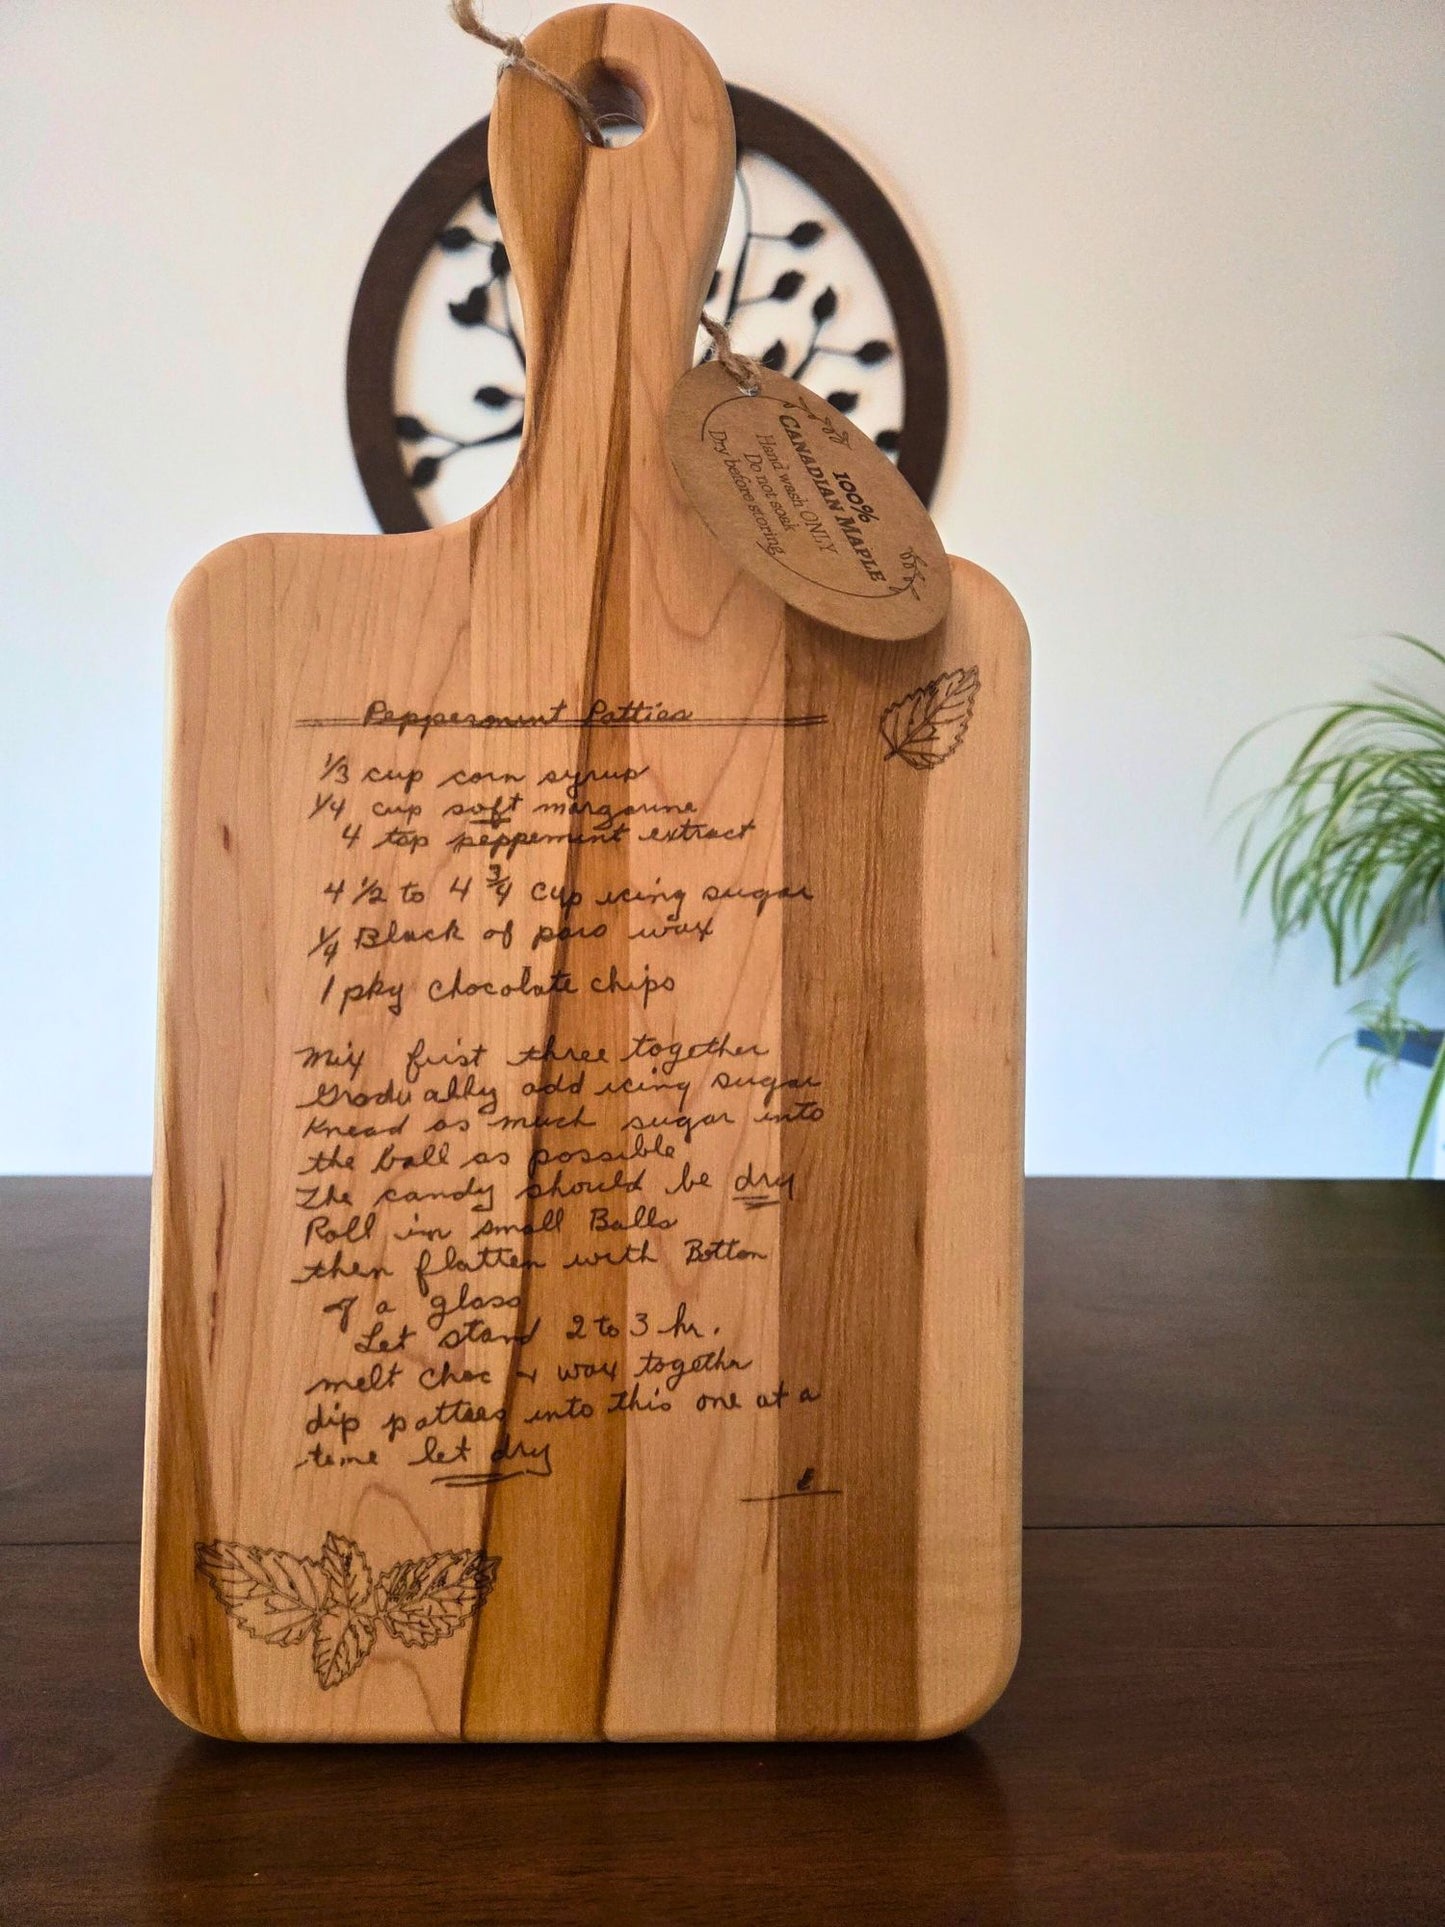 100%
CANADIAN MAPLE
Hand wash ONLY
Do not soak
Dry before storing
Peppermint Patties
1/3 cup corn syrup
1/4 cup soft margarine
4 tsp peppermint extract
4 1/2 to 4 3/4 cup icing sugar
1/4 Block of paro wax
1 pkg chocolate chips
Mix first three together
Gradually add icing sugar
Knead as much sugar into
the ball as possible
The candy should be dry
Roll in small Balls
then flatten with Bottom
of a glass
Let stand 2 to 3 hr.
melt choc + wax together
dip patties into this one at a
time let dry